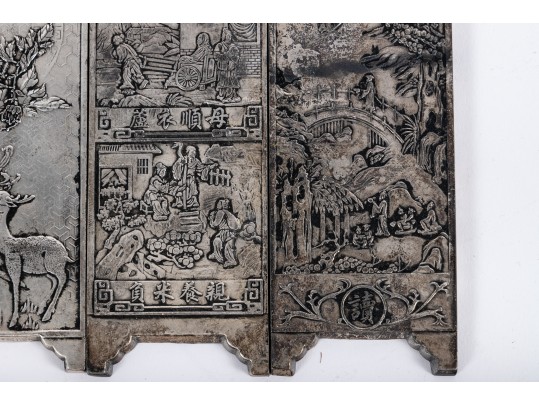 蘆衣順母
負米養親
讀